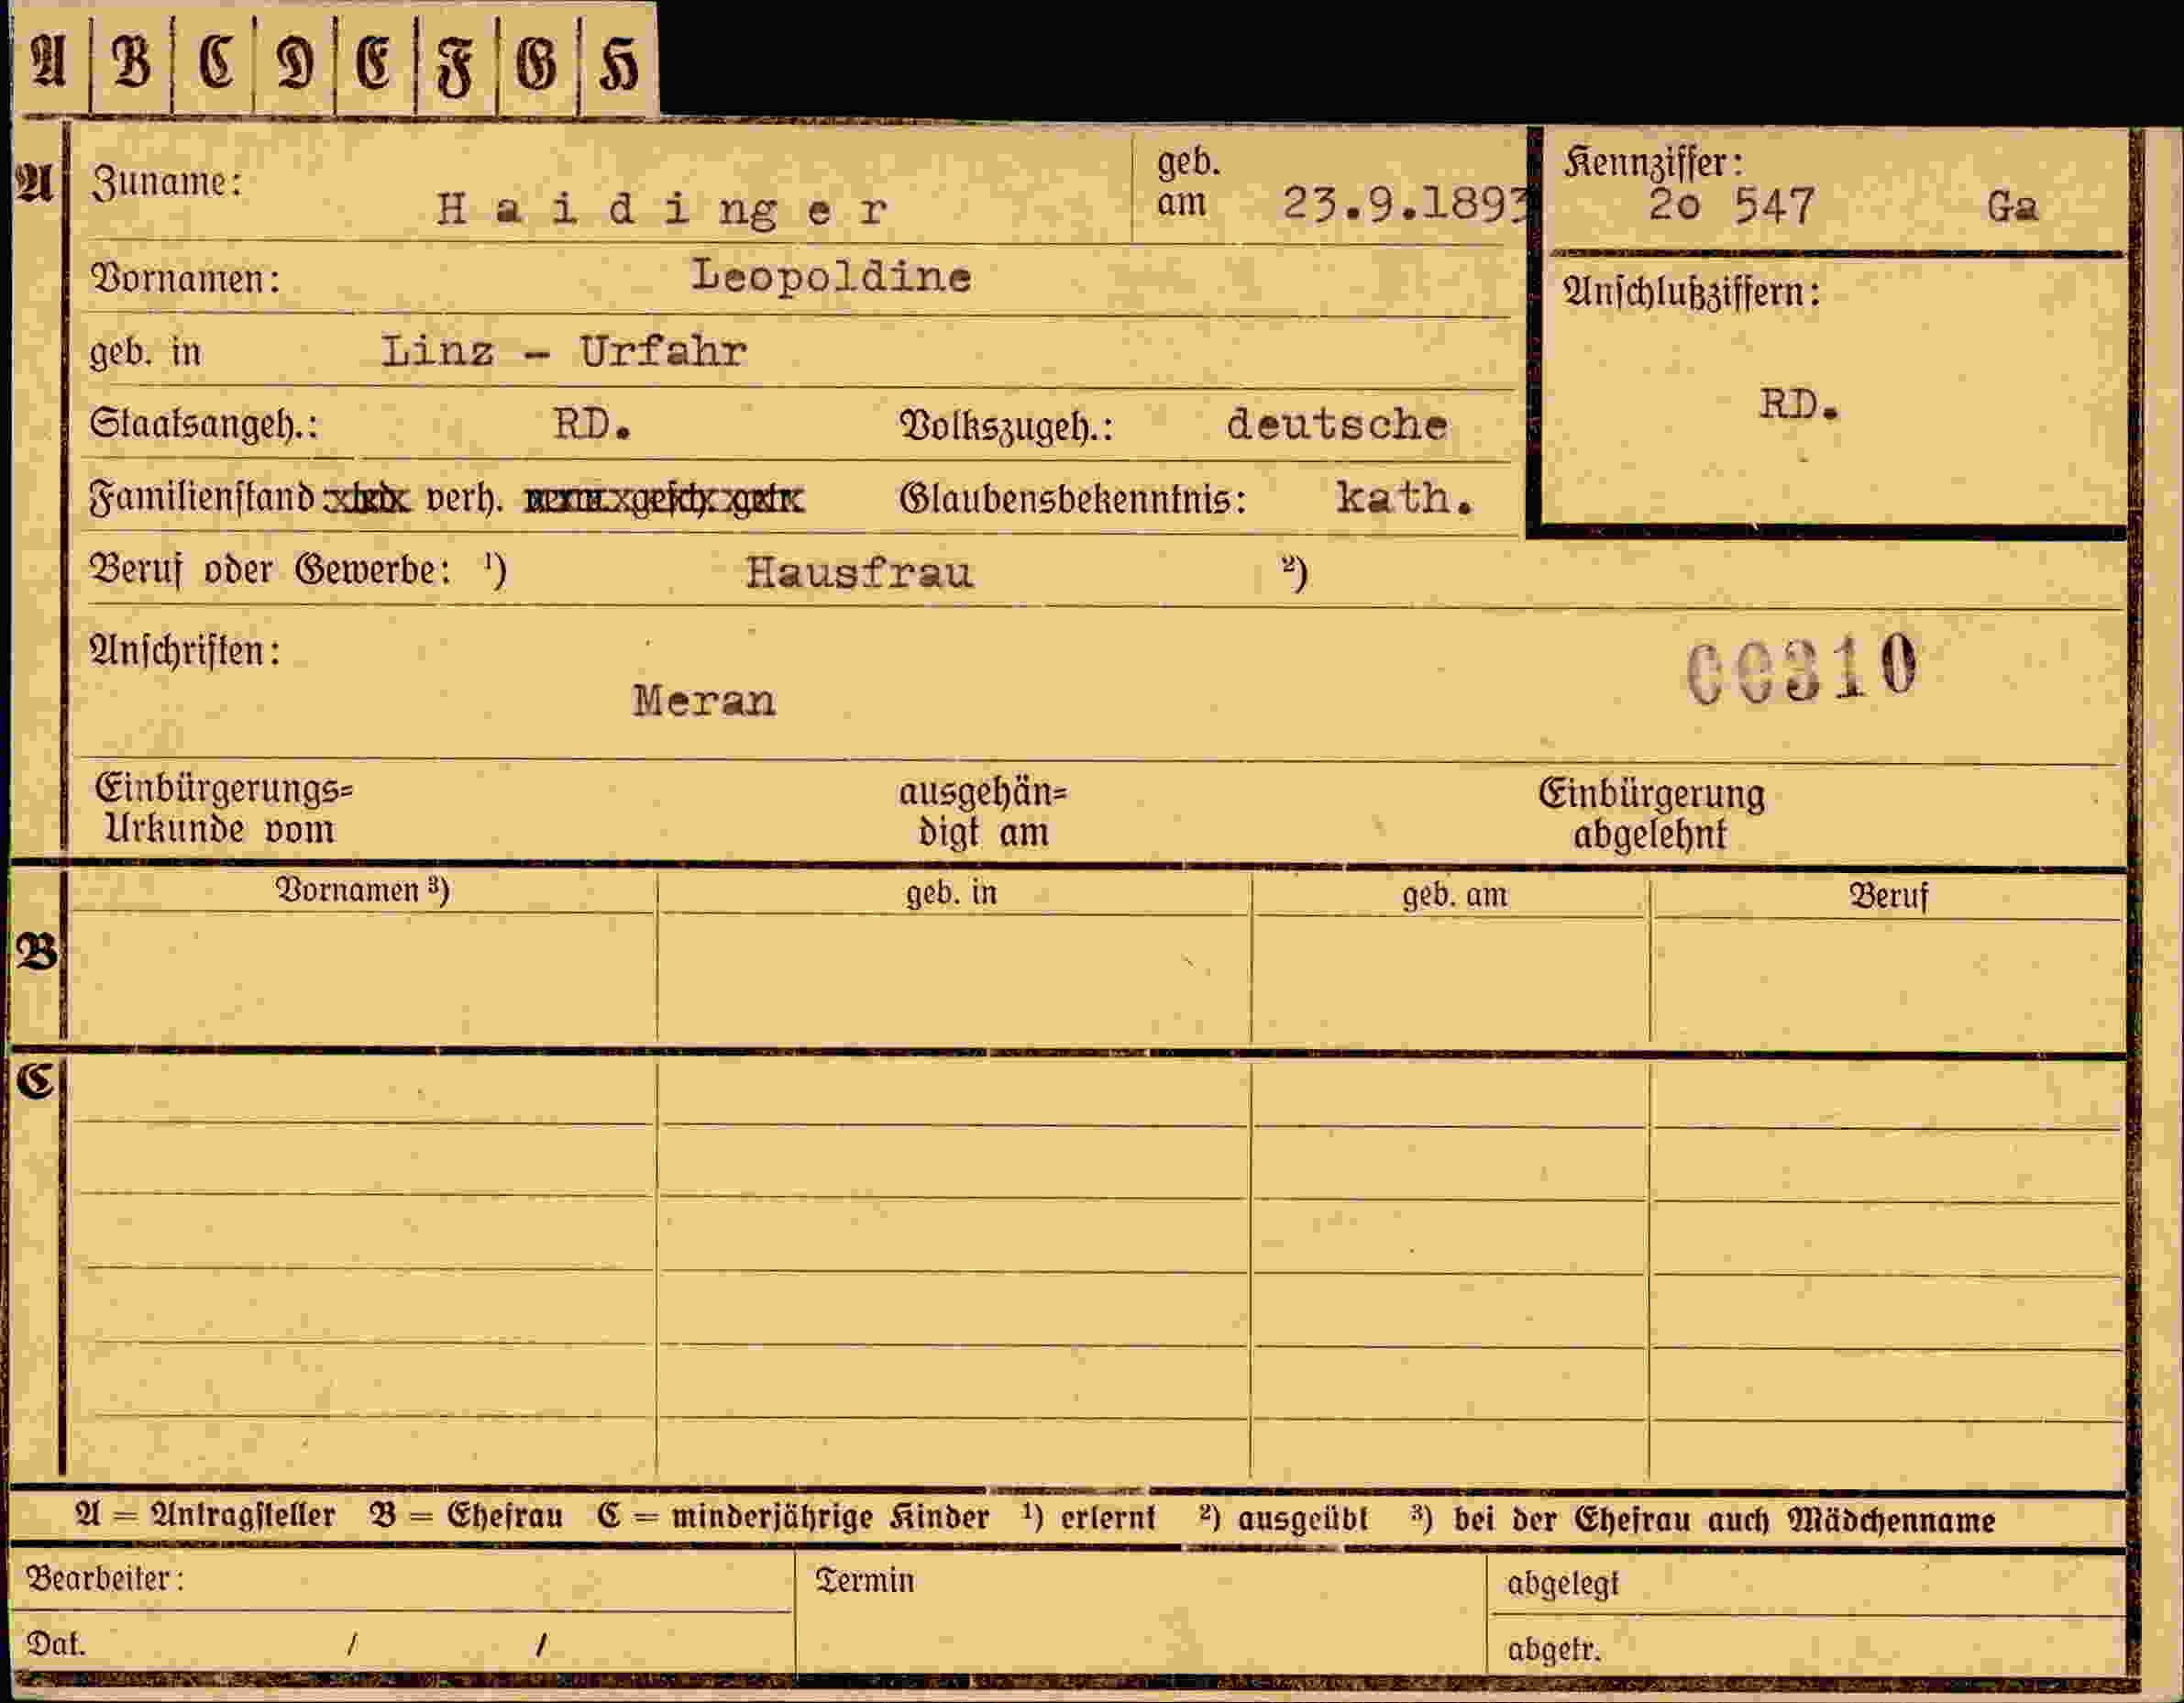 A B C D E F G H
A Zuname: Haidinger geb. am 23.9.1893 Kennziffer: 2o 547 Ga
Vornamen: Leopoldine
Anschlußziffern:
geb. in Linz - Urfahr
RD.
Staatsangeh.: RD. Volkszugeh.: deutsche
Familienstand verh. gesch. Glaubensbekenntnis: kath.
Beruf oder Gewerbe: ¹) Hausfrau ²)
Anschriften:
00310
Meran
Einbürgerungs= ausgehän= Einbürgerung
Urkunde vom digt am abgelehnt
Vornamen ³) geb. in geb. am Beruf
B
C
A = Antragsteller B = Ehefrau C = minderjährige Kinder ¹) erlernt ²) ausgeübt ³) bei der Ehefrau auch Mädchenname
Bearbeiter: Termin abgelegt
Dat. / / abgetr.